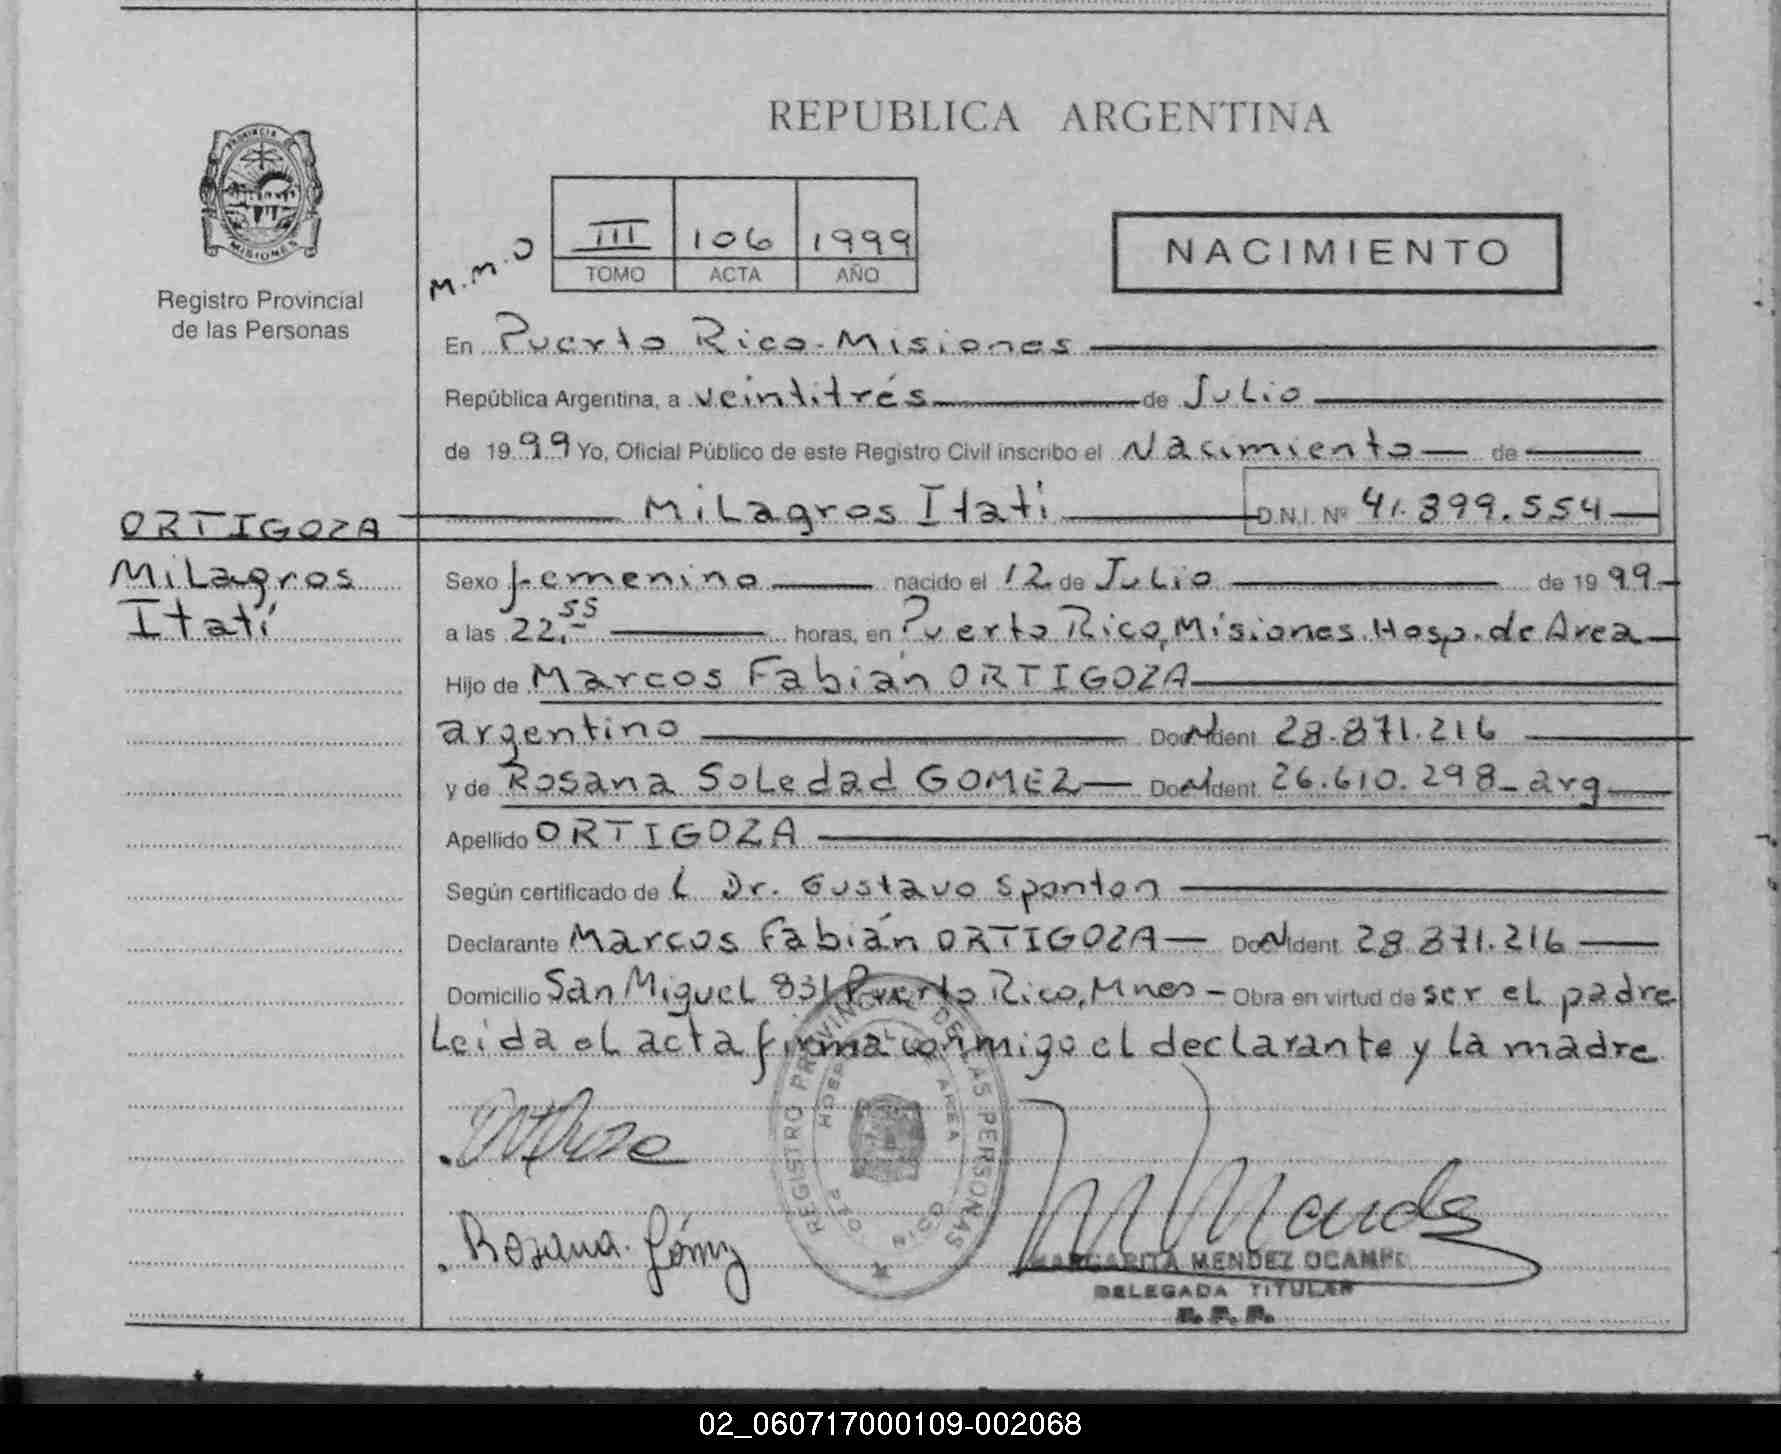 REPUBLICA ARGENTINA
PROVINCIA DE
MISIONES
Registro Provincial
de las Personas
M.M.O
III 106 1999
TOMO ACTA AÑO
NACIMIENTO
En Puerto Rico - Misiones
República Argentina, a veintitrés de Julio
de 1999 Yo, Oficial Público de este Registro Civil inscribo el Nacimiento de
Milagros Itatí D.N.I. Nº 41.899.554
ORTIGOZA
Milagros
Itatí
Sexo femenino nacido el 12 de Julio de 1999
a las 22,55 horas, en Puerto Rico, Misiones. Hosp. de Area
Hijo de Marcos Fabián ORTIGOZA
argentino Doc. Ident. 28.871.216
y de Rosana Soledad GOMEZ Doc. Ident. 26.610.298 - arg
Apellido ORTIGOZA
Según certificado de L Dr. Gustavo Sponton
Declarante Marcos Fabián ORTIGOZA Doc. Ident. 28.871.216
Domicilio San Miguel 831 Puerto Rico, Mnes - Obra en virtud de ser el padre
Leida el acta firma conmigo el declarante y la madre
REGISTRO PROVINCIAL DE LAS PERSONAS
HOSPITAL DE AREA
Rosana Gómez
M Mendez
MARGARITA MENDEZ OCAMPO
DELEGADA TITULAR
R. P. P.
02_060717000109-002068